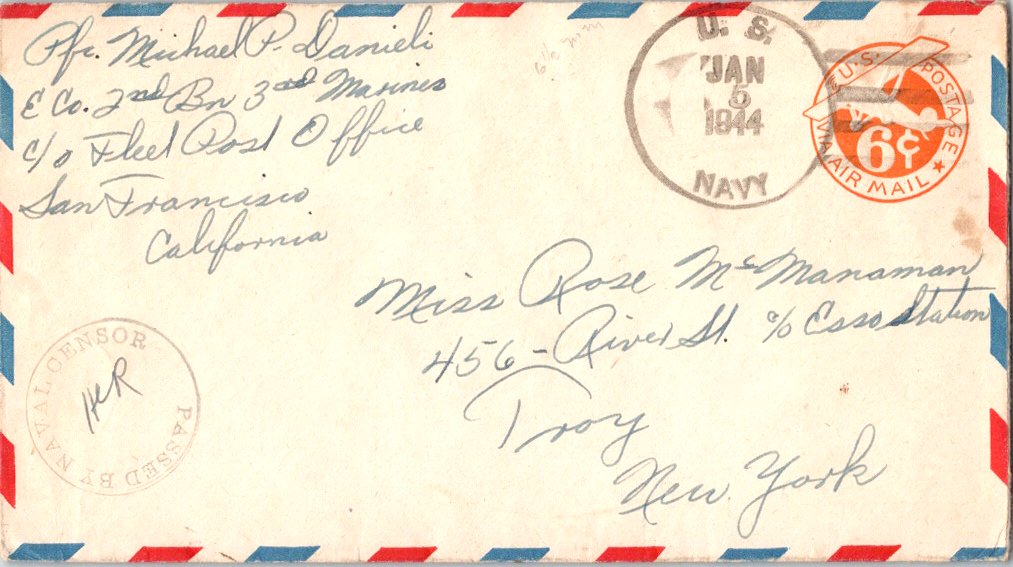 Pfc. Michael P. Danieli
E Co. 2nd Bn 3rd Marines
c/o Fleet Post Office
San Francisco
California
U. S.
JAN
5
1944
NAVY
U.S. POSTAGE
6¢
VIA AIR MAIL
Miss Rose McManaman
456 - River St. c/o Esso Station
Troy
New York
PASSED BY NAVAL CENSOR